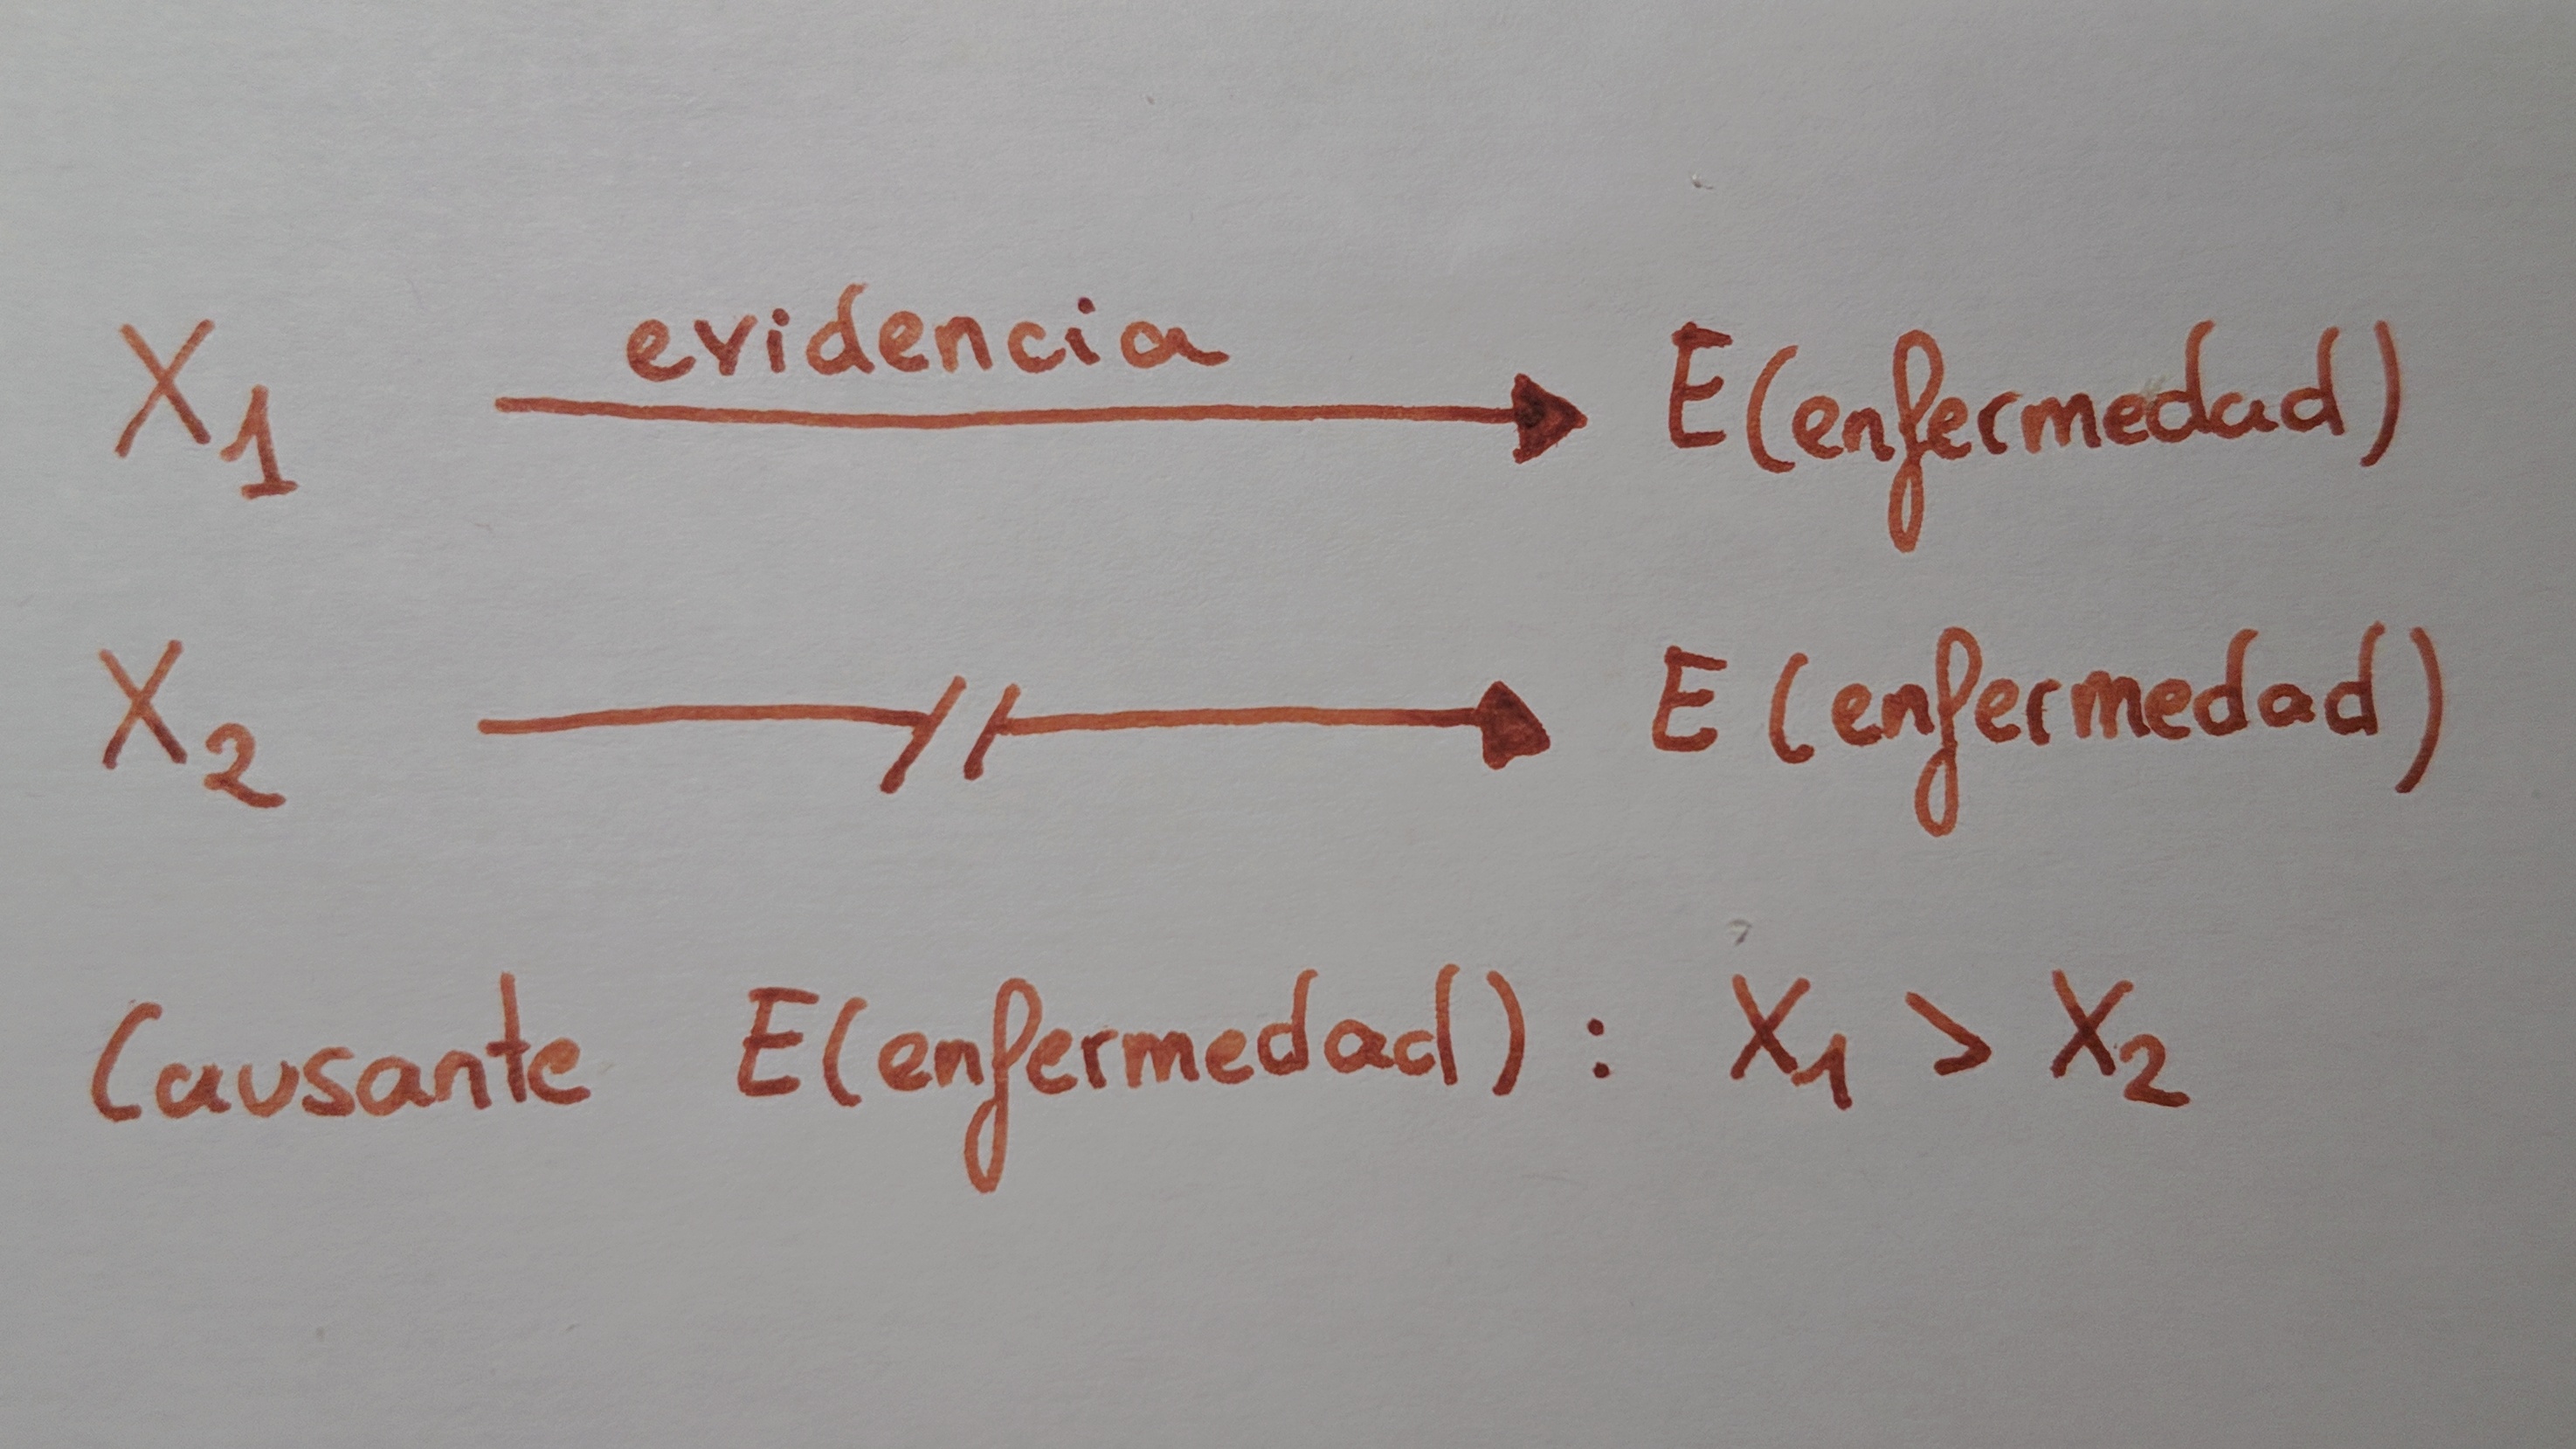 X₁ evidencia E(enfermedad)
X₂ E(enfermedad)
Causante E(enfermedad): X₁ > X₂